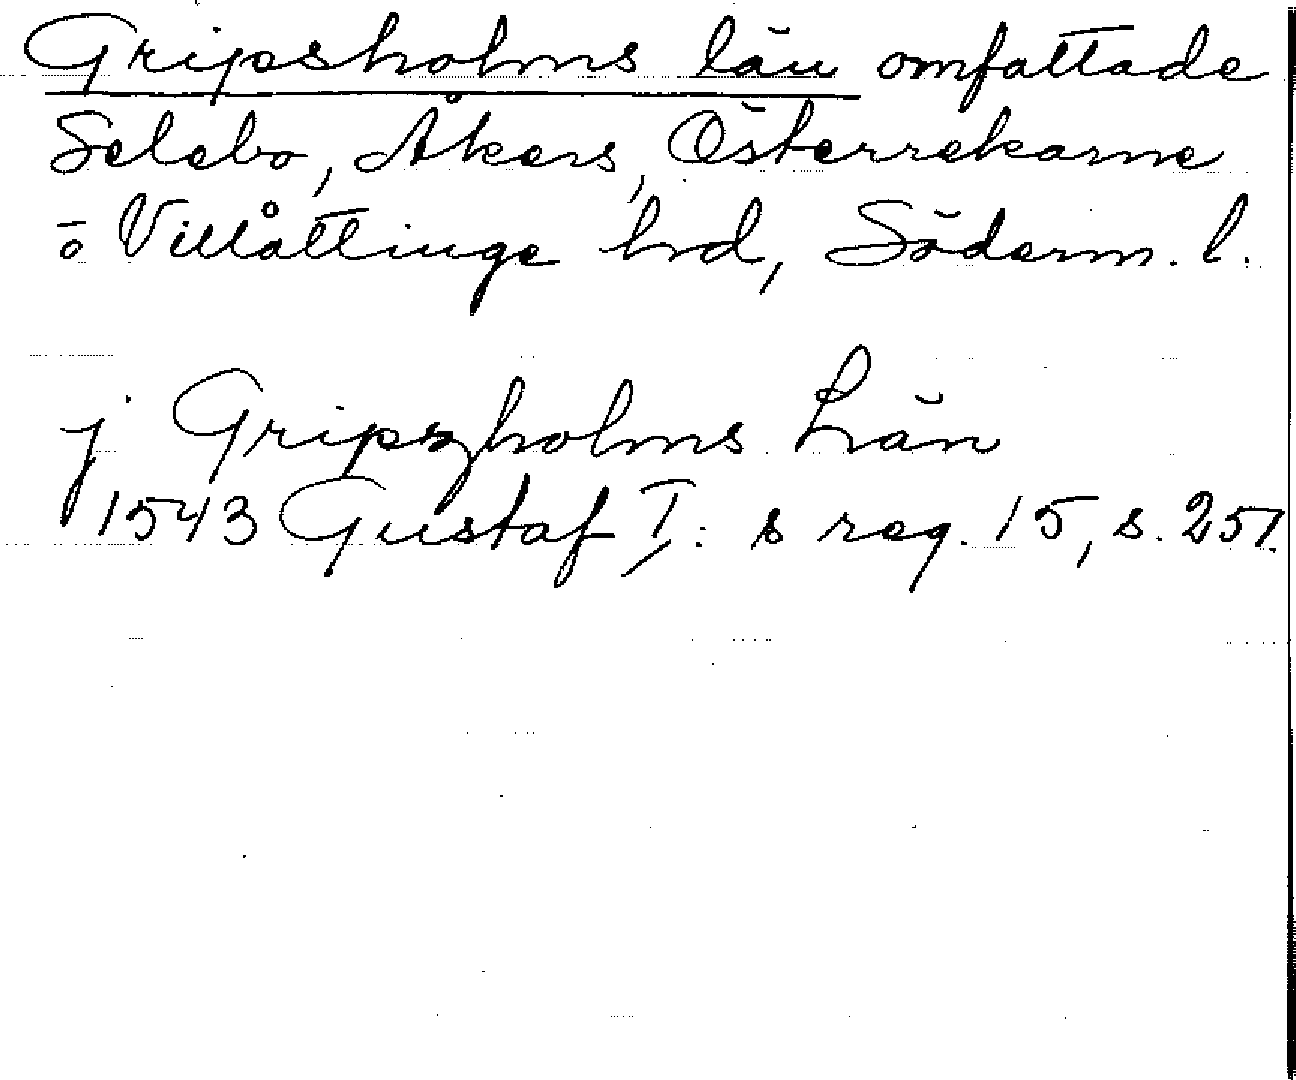 Gripsholms län omfattade
Selebo, Åkers, Österrekarne
o Villåttinge hrd, Söderm. l.
j Gripszholms Län
1543 Gustaf I: s reg. 15, s. 257.